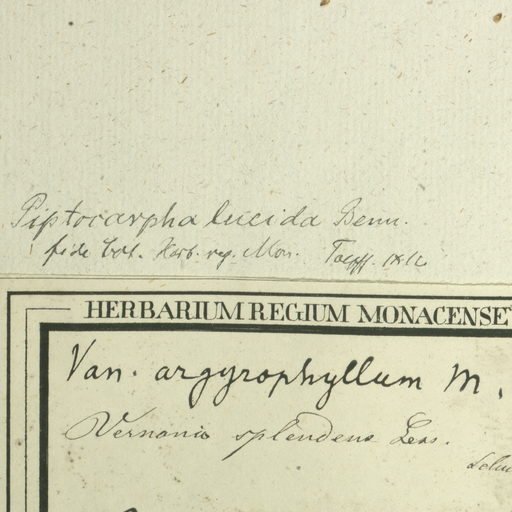 Piptocarpha lucida Benn.
fide Cat. Herb. reg. Mon.
HERBARIUM REGIUM MONACENSE
Van. argyrophyllum M.
Vernonia splendens Less.